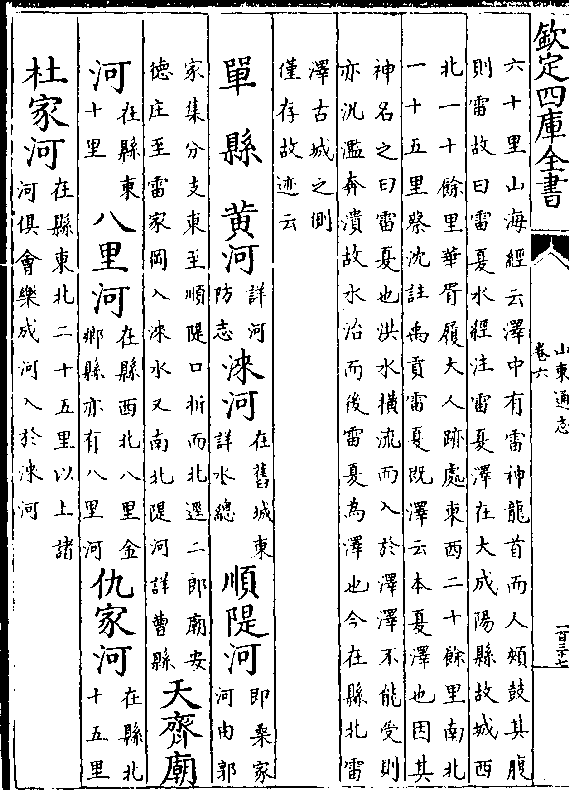 欽定四庫全書
山東通志
卷六
一百三十七
六十里山海經云澤中有雷神龍首而人頰鼓其腹
則雷故曰雷夏水經注雷夏澤在大成陽縣故城西
北一十餘里華胥履大人跡處東西二十餘里南北
一十五里蔡沈註禹貢雷夏既澤云本夏澤也因其
神名之曰雷夏也洪水橫流而入於澤澤不能受則
亦汎濫奔潰故水治而後雷夏為澤也今在縣北雷
澤古城之側
僅存故迹云
單縣 黄河詳河防志涞河在舊城東詳水總順隄河即桑家河由郭
家集分支東至順隄口折而北遶二郎廟安
德庄至雷家岡入涞水又南北隄河詳曹縣天齊廟
河在縣東十里八里河在縣西北八里金鄉縣亦有八里河仇家河在縣北十五里
杜家河在縣東北二十五里以上諸河俱會樂成河入於涞河